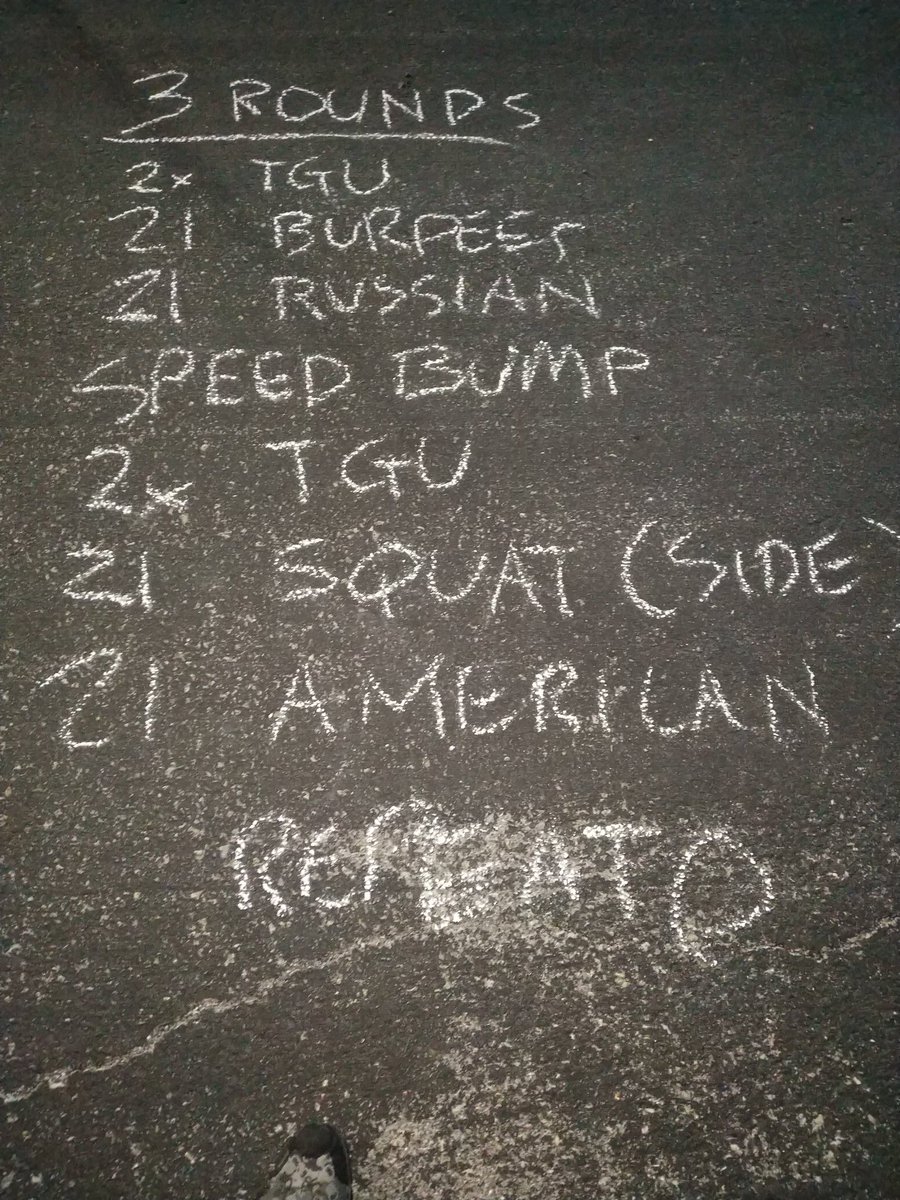 3 ROUNDS
2x TGU
21 BURPEES
21 RUSSIAN
SPEED BUMP
2x TGU
21 SQUAT (SIDE)
21 AMERICAN
REPEATO